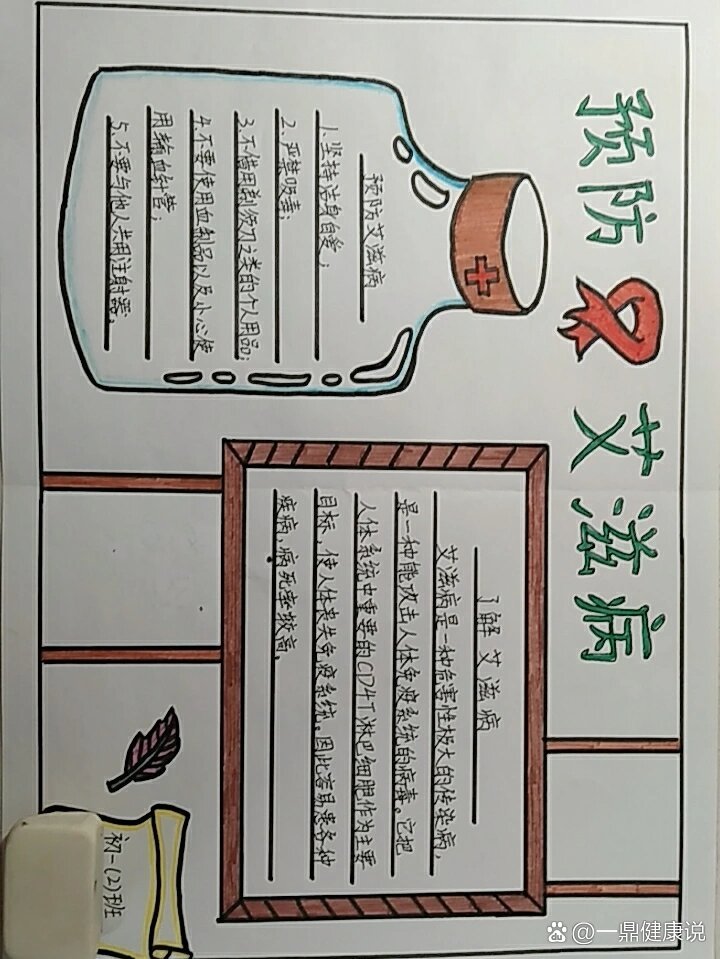 预防艾滋病
预防艾滋病
1.坚持洁身自爱；
2.严禁吸毒；
3.不借用剃须刀之类的个人用品；
4.不要使用血制品以及小心使
用输血针管；
5.不要与他人共用注射器。
了解艾滋病
艾滋病是一种危害性极大的传染病，
是一种能攻击人体免疫系统的病毒。它把
人体系统中重要的CD4T淋巴细胞作为主要
目标，使人体丧失免疫系统。因此容易患各种
疾病，病死率较高。
初一(2)班
Bai du @一鼎健康说